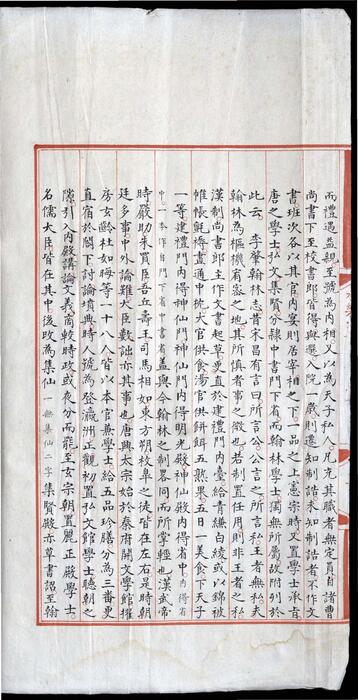 而禮遇益親至號為内相又以為天子私人凡充其職者無定員自諸曹
尚書下至校書郎皆得與選入院一歲則遷知制誥未知制誥者不作文
書班次各以其官内宴則居宰相之下一品之上憲宗時又置學士承㫖
唐之學士弘文集賢分隸中書門下省而翰林學士獨無所屬故附列於
此云　李肇翰林志昔宋昌有言曰所言公公言之所言私王者無私夫
翰林為樞機宥密之地其所慎者事之微也若制置任用則非王者之私
漢制尚書郎主作文書起草更直於建禮門内臺給青縑白綾或以錦被
帷帳氊褥畫通中枕大官供食湯官供餅餌五熟果五日一美食下天子
一等建禮門内得神仙門神仙門内得明光殿神仙殿内得省中内得省
中一本作自門下省中書省蓋與今翰林之制畧同而所掌輕也漢武帝
時嚴助朱買臣吾丘壽王司馬相如東方朔枚臯之徒皆在左右是時朝
廷多事中外論難大臣數詘亦其事也唐興太宗始於秦府開文學館擢
房玄齡杜如晦等一十八人皆以本官兼學士給五品珍膳分為三番更
直宿於閣下討論墳典時人號為登瀛洲正觀初置弘文館學士聽朝之
隙引入内殿講論文義商較時政或夜分而罷至玄宗朝置麗正殿學士
名儒大臣皆在其中後改為集仙一無集仙二字集賢殿亦草書詔至翰